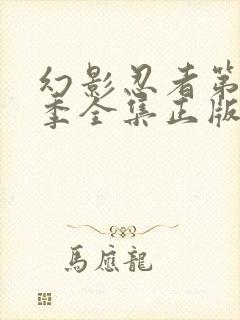 幻影忍者第
季全集正版
馬應龍